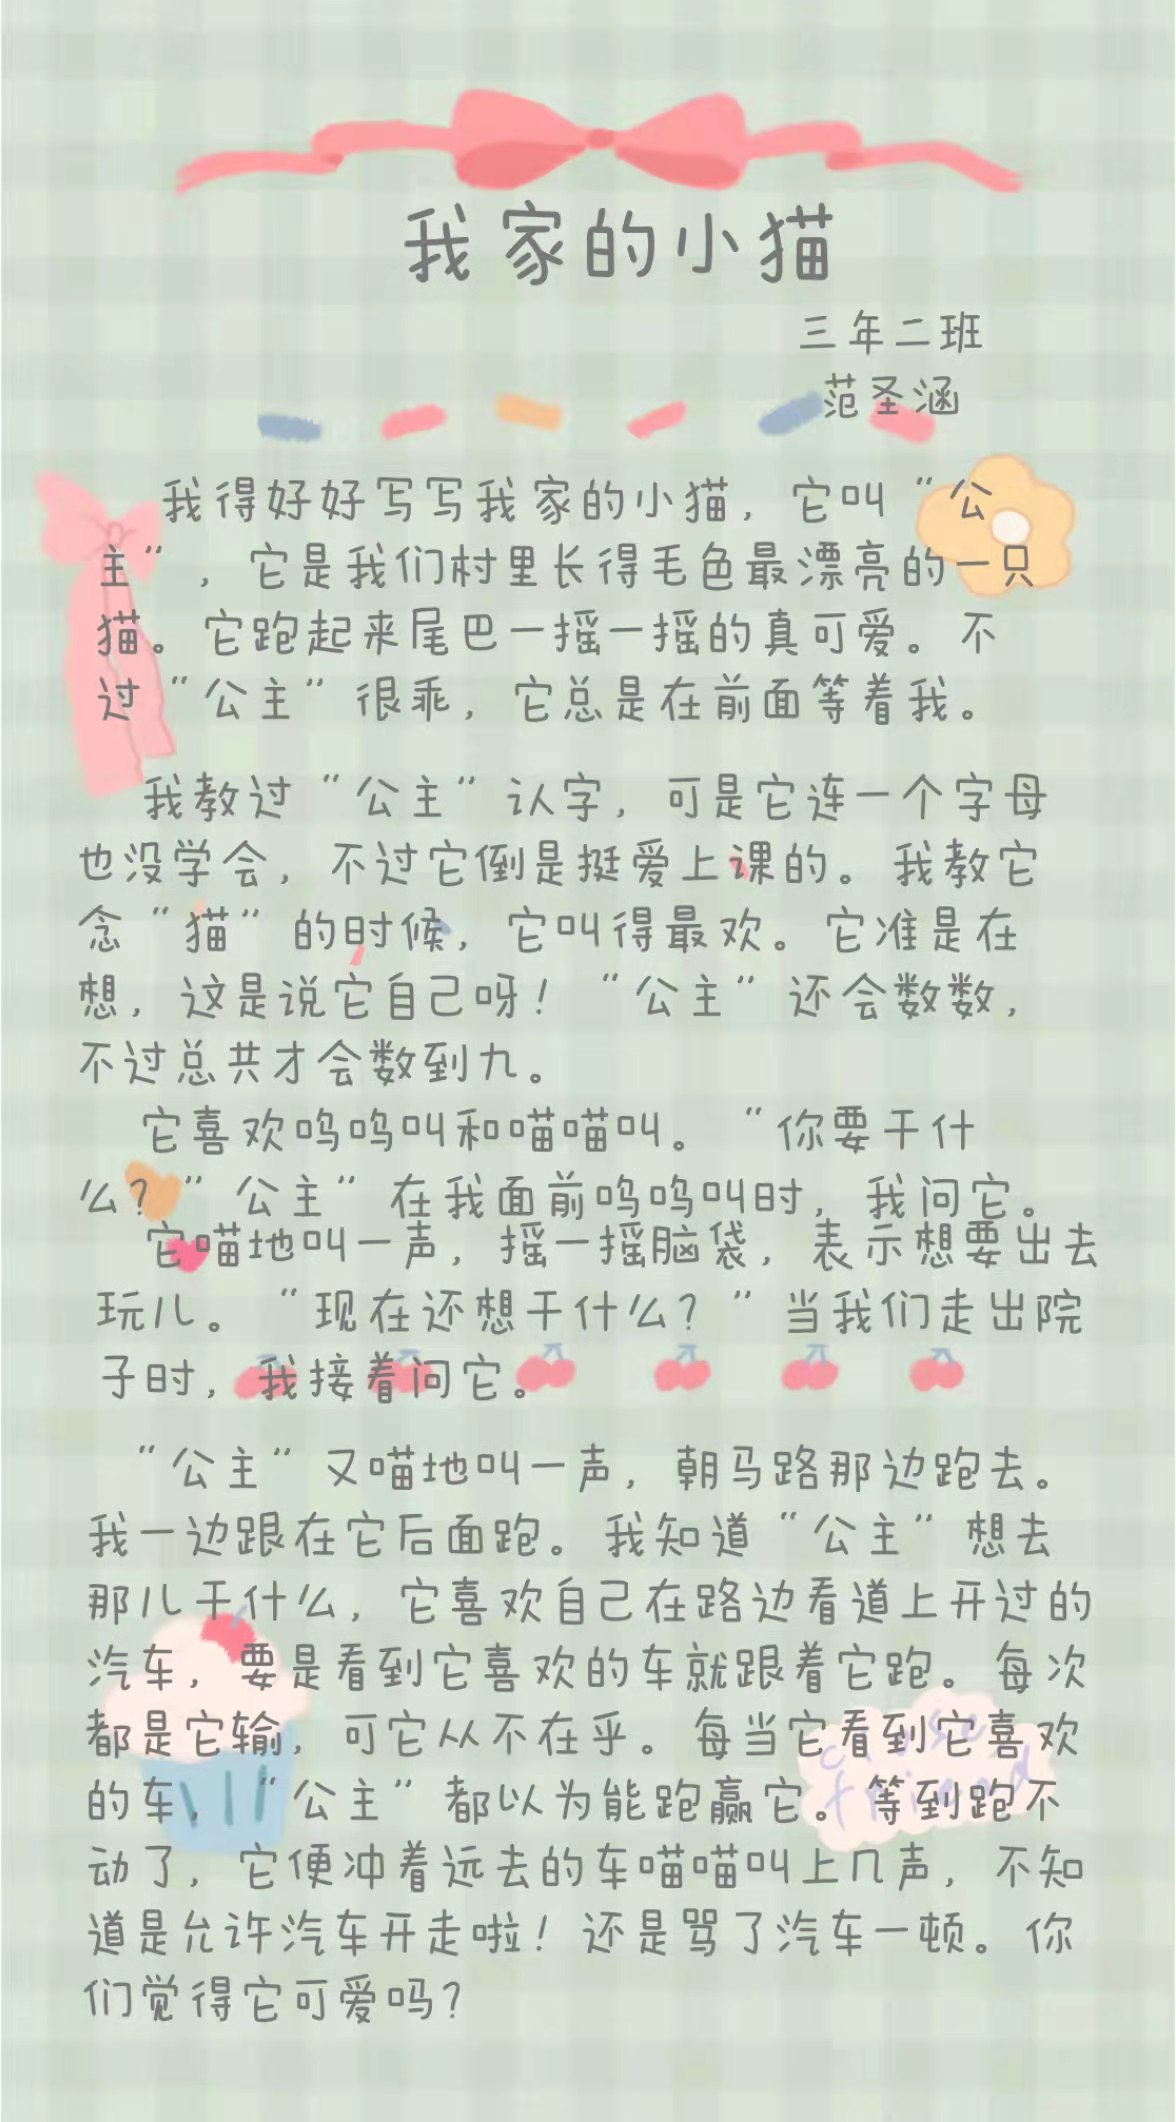 我家的小猫
三年二班
范圣涵
我得好好写写我家的小猫，它叫“公
主”，它是我们村里长得毛色最漂亮的一只
猫。它跑起来尾巴一摇一摇的真可爱。不
过“公主”很乖，它总是在前面等着我。
我教过“公主”认字，可是它连一个字母
也没学会，不过它倒是挺爱上课的。我教它
念“猫”的时候，它叫得最欢。它准是在
想，这是说它自己呀！“公主”还会数数，
不过总共才会数到九。
它喜欢呜呜叫和喵喵叫。“你要干什
么？”公主”在我面前呜呜叫时，我问它。
它喵地叫一声，摇一摇脑袋，表示想要出去
玩儿。“现在还想干什么？”当我们走出院
子时，我接着问它。
“公主”又喵地叫一声，朝马路那边跑去。
我一边跟在它后面跑。我知道“公主”想去
那儿干什么，它喜欢自己在路边看道上开过的
汽车，要是看到它喜欢的车就跟着它跑。每次
都是它输，可它从不在乎。每当它看到它喜欢
的车，“公主”都以为能跑赢它。等到跑不
动了，它便冲着远去的车喵喵叫上几声，不知
道是允许汽车开走啦！还是骂了汽车一顿。你
们觉得它可爱吗？
close
friend